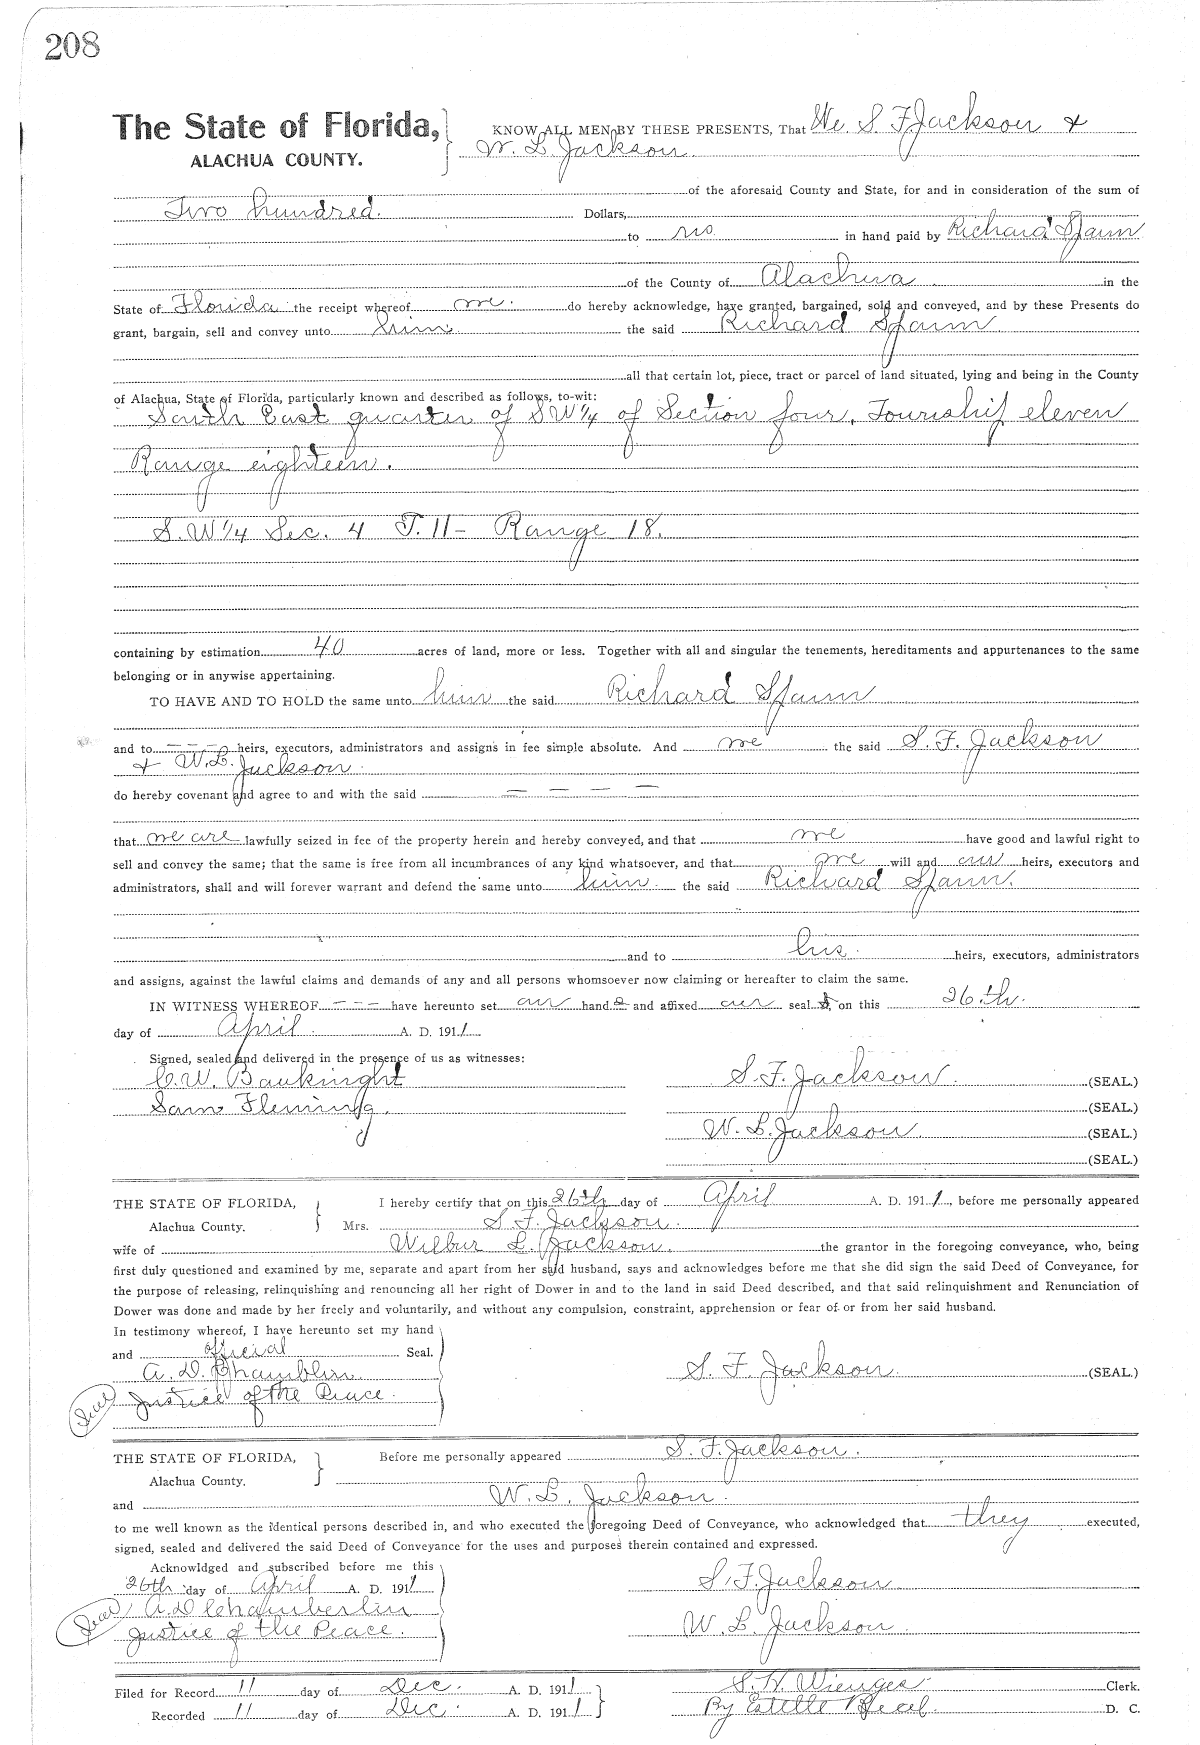 208
The State of Florida, KNOW ALL MEN BY THESE PRESENTS, That We. S. F. Jackson &
ALACHUA COUNTY. W. L. Jackson
of the aforesaid County and State, for and in consideration of the sum of
Two hundred. Dollars,
to us in hand paid by Richard Spann
of the County of Alachua in the
State of Florida the receipt whereof we do hereby acknowledge, have granted, bargained, sold and conveyed, and by these Presents do
grant, bargain, sell and convey unto him the said Richard Spann
all that certain lot, piece, tract or parcel of land situated, lying and being in the County
of Alachua, State of Florida, particularly known and described as follows, to-wit:
South East quarter of SW 1/4 of Section four, Township eleven
Range eighteen.
S.W 1/4 Sec. 4 T. 11 - Range 18.
containing by estimation 40 acres of land, more or less. Together with all and singular the tenements, hereditaments and appurtenances to the same
belonging or in anywise appertaining.
TO HAVE AND TO HOLD the same unto him the said Richard Spann
and to - - - heirs, executors, administrators and assigns in fee simple absolute. And we the said S. F. Jackson
& W. L. Jackson
do hereby covenant and agree to and with the said - - - -
that we are lawfully seized in fee of the property herein and hereby conveyed, and that we have good and lawful right to
sell and convey the same; that the same is free from all incumbrances of any kind whatsoever, and that we will and our heirs, executors and
administrators, shall and will forever warrant and defend the same unto him the said Richard Spann.
and to his heirs, executors, administrators
and assigns, against the lawful claims and demands of any and all persons whomsoever now claiming or hereafter to claim the same.
IN WITNESS WHEREOF - - - have hereunto set our hand s and affixed our seal s, on this 26th.
day of April A. D. 1911
Signed, sealed and delivered in the presence of us as witnesses:
C. W. Bauknight S. F. Jackson (SEAL.)
Sam Fleming. (SEAL.)
W. L. Jackson (SEAL.)
(SEAL.)
THE STATE OF FLORIDA, I hereby certify that on this 26th day of April A. D. 1911, before me personally appeared
Alachua County. Mrs. S. F. Jackson
wife of Wilbur L. Jackson. the grantor in the foregoing conveyance, who, being
first duly questioned and examined by me, separate and apart from her said husband, says and acknowledges before me that she did sign the said Deed of Conveyance, for
the purpose of releasing, relinquishing and renouncing all her right of Dower in and to the land in said Deed described, and that said relinquishment and Renunciation of
Dower was done and made by her freely and voluntarily, and without any compulsion, constraint, apprehension or fear of or from her said husband.
In testimony whereof, I have hereunto set my hand
and official Seal.
A. D. Chamblin S. F. Jackson (SEAL)
Seal Justice of the Peace.
THE STATE OF FLORIDA, Before me personally appeared S. F. Jackson.
Alachua County.
and W. L. Jackson
to me well known as the identical persons described in, and who executed the foregoing Deed of Conveyance, who acknowledged that they executed,
signed, sealed and delivered the said Deed of Conveyance for the uses and purposes therein contained and expressed.
Acknowldged and subscribed before me this
26th day of April A. D. 1911 S. F. Jackson
Seal A D Chamberlin
Justice of the Peace. W. L. Jackson
Filed for Record 11 day of Dec. A. D. 1911 S. H. Wienges Clerk.
Recorded 11 day of Dec. A. D. 1911 By Estelle D. C.